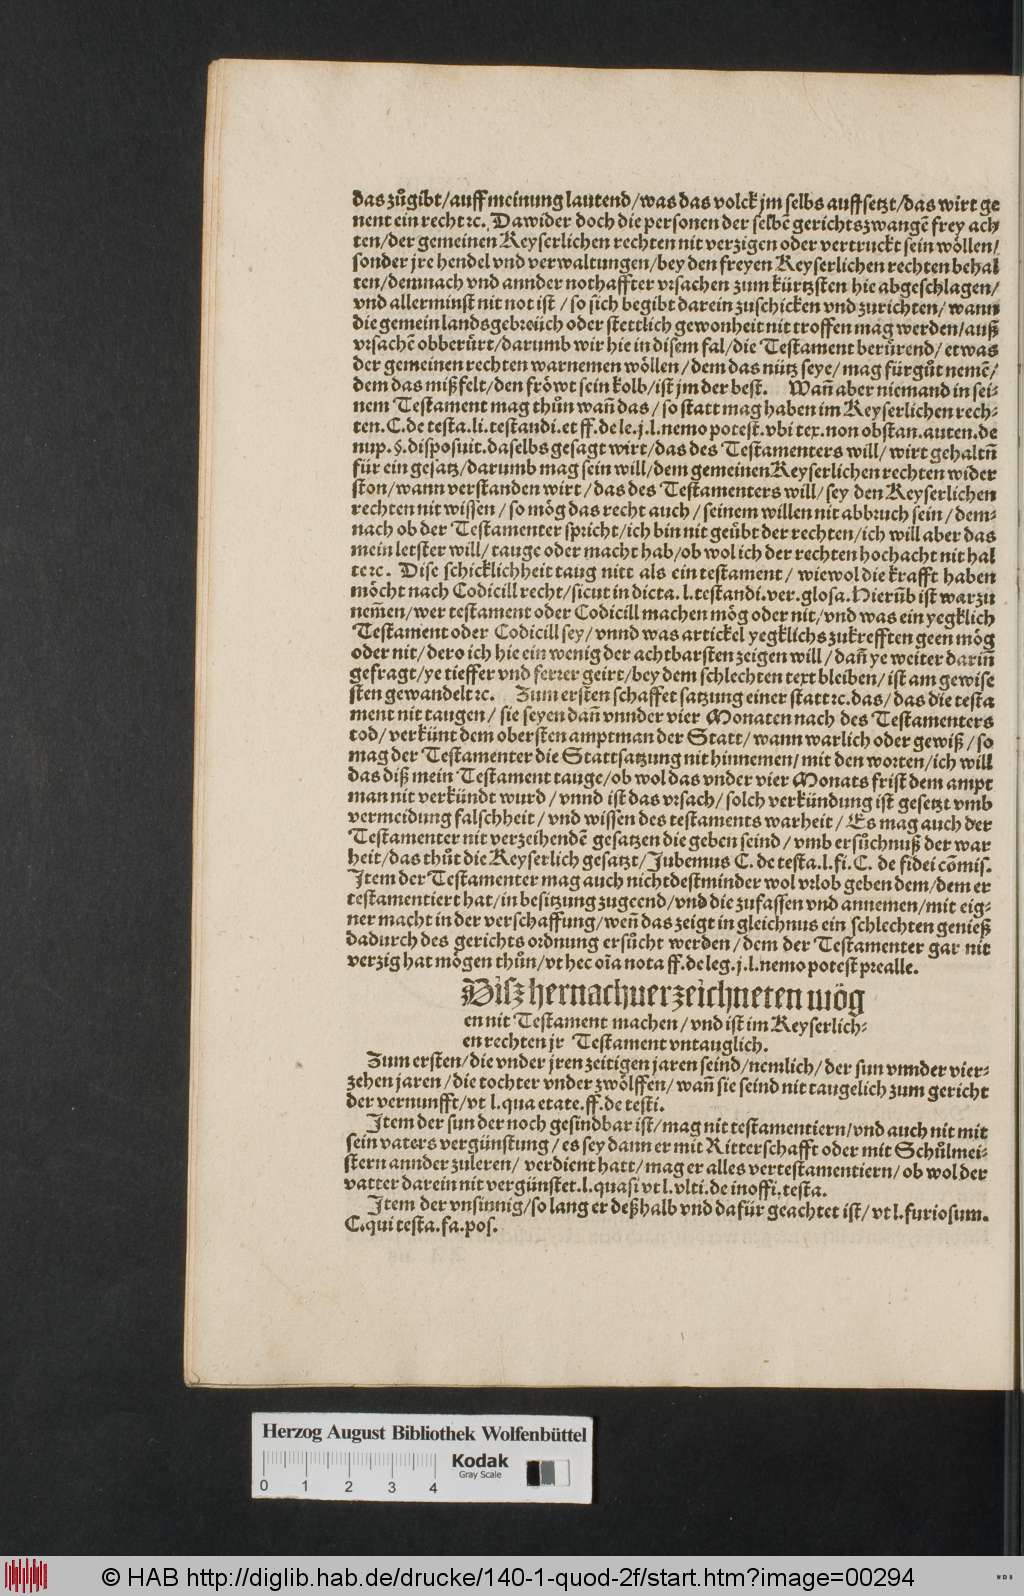 das zůgibt/auff meinung lautend/was das volck jm selbs auffsetzt/das wirt ge
nent ein recht ꝛc. Dawider doch die personen der selbẽ gerichtszwangẽ frey ach
ten/der gemeinen Keyserlichen rechten nit verzigen oder vertruckt sein wöllen/
sonder jre hendel vnd verwaltungen/bey den freyen Keyserlichen rechten behal
ten/demnach vnd annder nothaffter vrsachen zum kürtzsten hie abgeschlagen/
vnd allerminst nit not ist / so sich begibt darein zuschicken vnd zurichten/ wann
die gemein landsgebreüch oder stettlich gewonheit nit troffen mag werden/auß
vrsachẽ obberürt/darumb wir hie in disem fal/die Testament berürend/ etwas
der gemeinen rechten warnemen wöllen/dem das nütz seye/ mag fürgůt nemẽ/
dem das mißfelt/den fröwt sein kolb/ist jm der best. Wañ aber niemand in sei-
nem Testament mag thůn wañ das / so statt mag haben im Keyserlichen rech-
ten. C. de testa. li. testandi. et ff. de le. j. l. nemo potest. vbi tex. non obstan. auten. de
nup. §. disposuit. daselbs gesagt wirt/das des Testamenters will/ wirt gehaltñ
für ein gesatz/darumb mag sein will/dem gemeinen Keyserlichen rechten wider
ston/wann verstanden wirt / das des Testamenters will/ sey den Keyserlichen
rechten nit wissen / so mög das recht auch / seinem willen nit abbruch sein / dem-
nach ob der Testamenter spricht/ich bin nit geübt der rechten/ich will aber das
mein letster will/ tauge oder macht hab/ob wol ich der rechten hochacht nit hal
te ꝛc. Dise schicklichheit taug nitt als ein testament / wiewol die krafft haben
möcht nach Codicill recht/sicut in dicta. l. testandi. ver. glosa. Hierũb ist warzu
nem̃en/wer testament oder Codicill machen mög oder nit/vnd was ein yegklich
Testament oder Codicill sey/vnnd was artickel yegklichs zukrefften geen mög
oder nit/ dero ich hie ein wenig der achtbarsten zeigen will / dañ ye weiter dariñ
gefragt/ye tieffer vnd ferrer geirt/bey dem schlechten text bleiben/ ist am gewise
sten gewandelt ꝛc. Zum ersten schaffet satzung einer statt ꝛc. das/das die testa
ment nit taugen / sie seyen dañ vnnder vier Monaten nach des Testamenters
tod/ verkünt dem obersten amptman der Statt/ wann warlich oder gewiß / so
mag der Testamenter die Stattsatzung nit hinnemen/ mit den worten/ich will
das diß mein Testament tauge/ob wol das vnder vier Monats frist dem ampt
man nit verkündt wurd / vnnd ist das vrsach/ solch verkündung ist gesetzt vmb
vermeidung falschheit / vnd wissen des testaments warheit / Es mag auch der
Testamenter nit verzeihendẽ gesatzen die geben seind / vmb ersůchnuß der war
heit/das thůt die Keyserlich gesatzt/Jubemus C. de testa. l. fi. C. de fidei cõmis.
Item der Testamenter mag auch nichtdestminder wol vrlob geben dem/dem er
testamentiert hat/in besitzung zugeend/vnd die zufassen vnd annemen/mit eig-
ner macht in der verschaffung/weñ das zeigt in gleichnus ein schlechten genieß
dadurch des gerichts ordnung ersůcht werden / dem der Testamenter gar nit
verzig hat mögen thůn/vt hec oĩa nota ff. de leg. j. l. nemo potest prealle.
Disz hernachuerzeichneten mög
en nit Testament machen / vnd ist im Keyserlich-
en rechten jr Testament vntauglich.
Zum ersten/die vnder jren zeitigen jaren seind/nemlich/der sun vnnder vier-
zehen jaren / die tochter vnder zwölffen/ wañ sie seind nit taugelich zum gericht
der vernunfft/vt l. qua etate. ff. de testi.
Item der sun der noch gesindbar ist/mag nit testamentiern/vnd auch nit mit
sein vaters vergünstung / es sey dann er mit Ritterschafft oder mit Schůlmei-
stern annder zuleren/ verdient hatt/mag er alles vertestamentiern/ ob wol der
vatter darein nit vergünstet. l. quasi vt l. vlti. de inoffi. testa.
Item der vnsinnig/so lang er deßhalb vnd dafür geachtet ist/ vt l. furiosum.
C. qui testa. fa. pos.
Herzog August Bibliothek Wolfenbüttel
Kodak
Gray Scale
0 1 2 3 4
© HAB http://diglib.hab.de/drucke/140-1-quod-2f/start.htm?image=00294